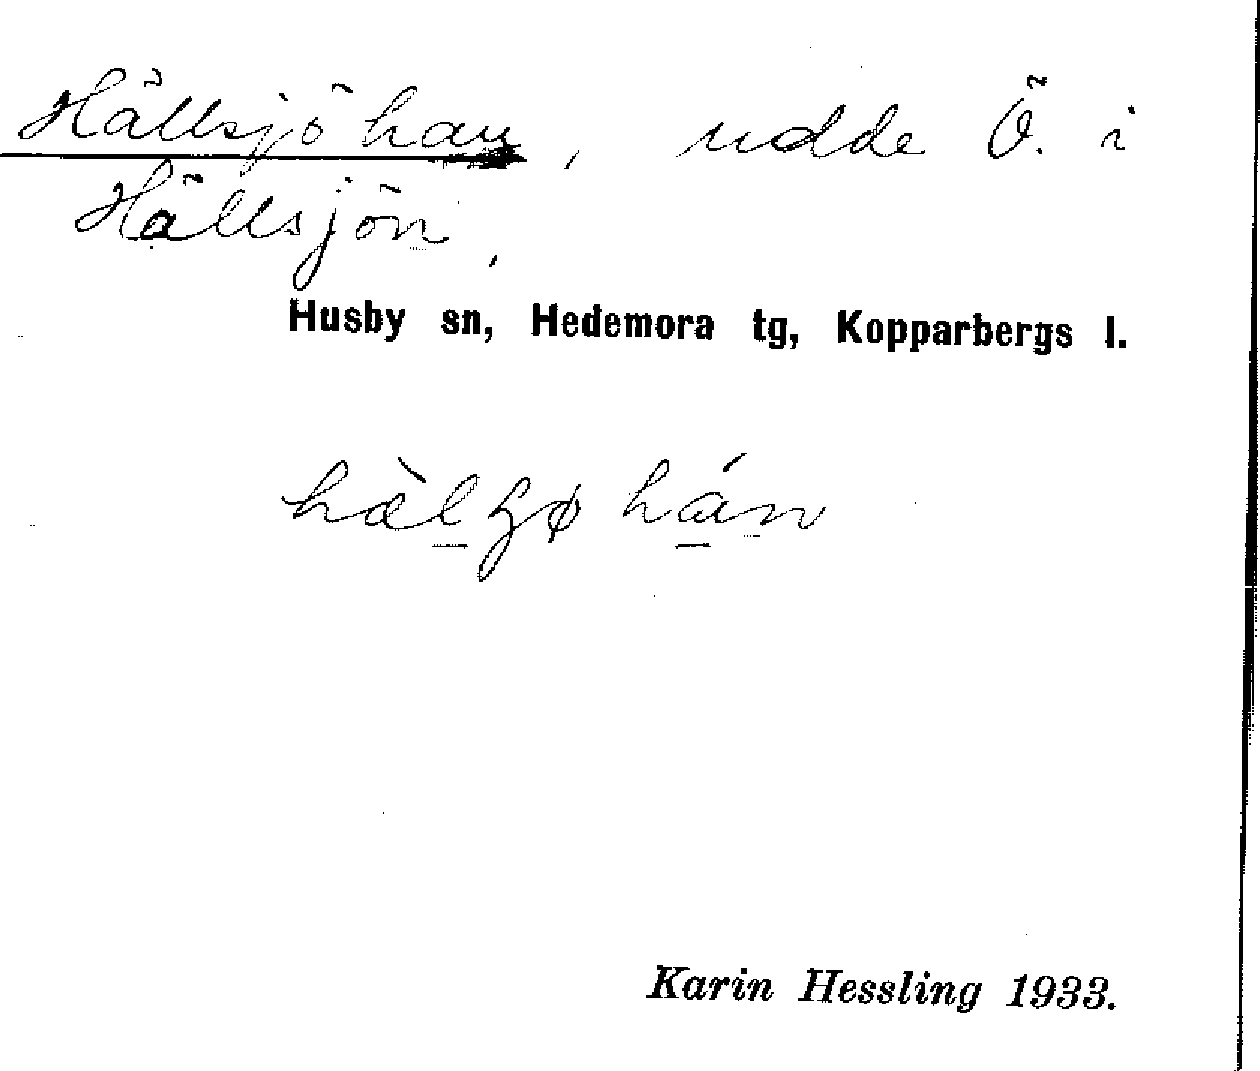 Hällsjöhan, udde Ö. i
Hällsjön,
Husby sn, Hedemora tg, Kopparbergs l.
Karin Hessling 1933.